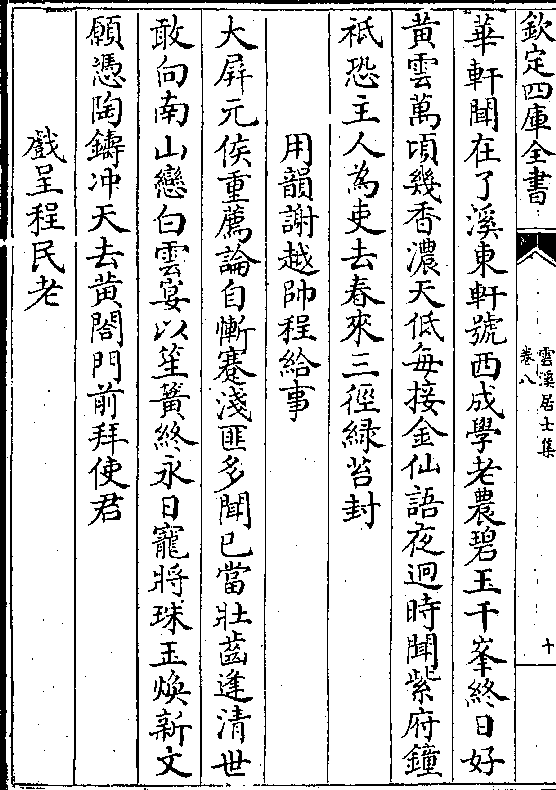 欽定四庫全書
雲溪居士集
卷八
十
華軒聞在了溪東軒號西成學老農碧玉千峯終日好
黃雲萬頃幾香濃天低每接金仙語夜迥時聞紫府鐘
祇恐主人為吏去春來三徑緑苔封
用韻謝越帥程給事
大屏元侯重薦論自慚蹇淺匪多聞已當壯齒逢清世
敢向南山戀白雲宴以笙簧終永日寵將珠玉煥新文
願憑陶鑄冲天去黃閤門前拜使君
戲呈程民老